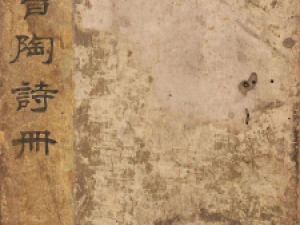 陶詩冊